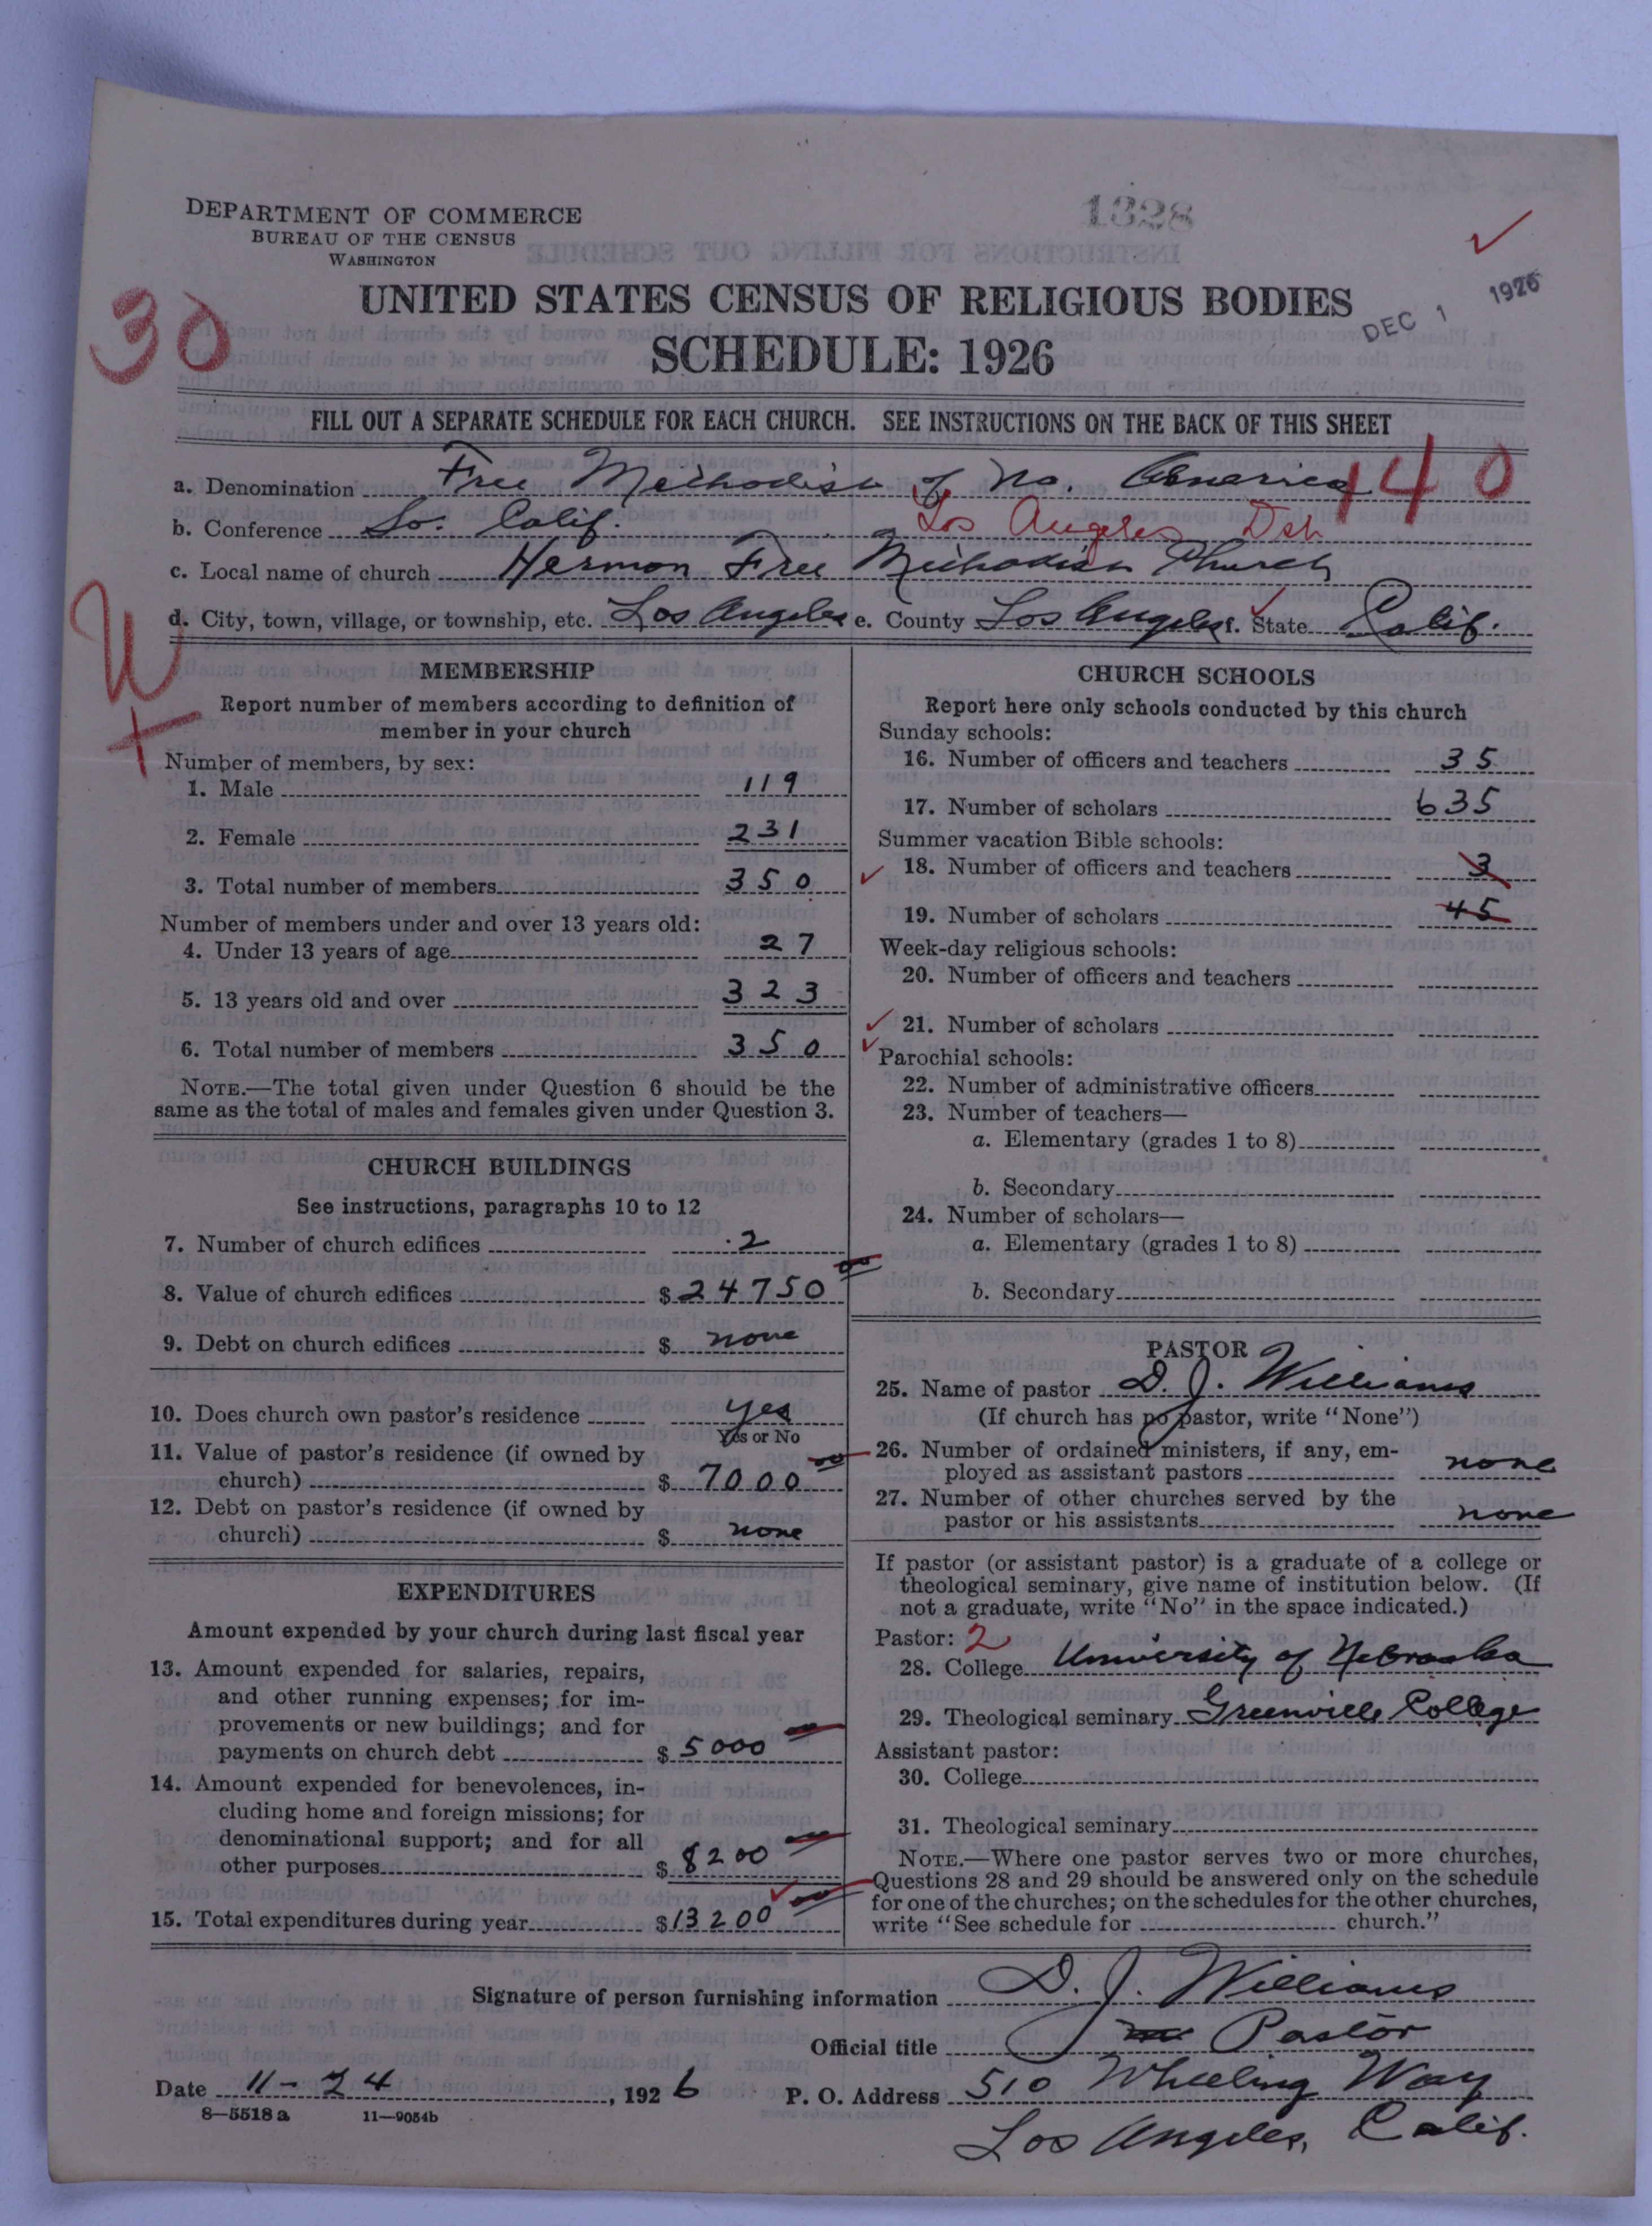 DEPARTMENT OF COMMERCE
BUREAU OF THE CENSUS
WASHINGTON
1328
DEC 1 1926
UNITED STATES CENSUS OF RELIGIOUS BODIES
SCHEDULE: 1926
30
FILL OUT A SEPARATE SCHEDULE FOR EACH CHURCH. SEE INSTRUCTIONS ON THE BACK OF THIS SHEET
140
a. Denomination Free Methodist of No. America
b. Conference So. Calif. Los Angeles Dst
c. Local name of church Hermon Free Methodist Church
d. City, town, village, or township, etc. Los Angeles e. County Los Angeles f. State Calif.
MEMBERSHIP
Report number of members according to definition of
member in your church
Number of members, by sex:
1. Male 119
2. Female 231
3. Total number of members 350
Number of members under and over 13 years old:
4. Under 13 years of age 27
5. 13 years old and over 323
6. Total number of members 350
NOTE.—The total given under Question 6 should be the
same as the total of males and females given under Question 3.
CHURCH BUILDINGS
See instructions, paragraphs 10 to 12
7. Number of church edifices 2
8. Value of church edifices $ 24750 00
9. Debt on church edifices $ none
10. Does church own pastor's residence yes
Yes or No
11. Value of pastor's residence (if owned by
church) $ 7000 00
12. Debt on pastor's residence (if owned by
church) $ none
EXPENDITURES
Amount expended by your church during last fiscal year
13. Amount expended for salaries, repairs,
and other running expenses; for im-
provements or new buildings; and for
payments on church debt $ 5000
14. Amount expended for benevolences, in-
cluding home and foreign missions; for
denominational support; and for all
other purposes $ 8200
15. Total expenditures during year $ 13200 00
CHURCH SCHOOLS
Report here only schools conducted by this church
Sunday schools:
16. Number of officers and teachers 35
17. Number of scholars 635
Summer vacation Bible schools:
18. Number of officers and teachers 3
19. Number of scholars 45
Week-day religious schools:
20. Number of officers and teachers
21. Number of scholars
Parochial schools:
22. Number of administrative officers
23. Number of teachers—
a. Elementary (grades 1 to 8)
b. Secondary
24. Number of scholars—
a. Elementary (grades 1 to 8)
b. Secondary
PASTOR
25. Name of pastor D. J. Williams
(If church has no pastor, write "None")
26. Number of ordained ministers, if any, em-
ployed as assistant pastors none
27. Number of other churches served by the
pastor or his assistants none
If pastor (or assistant pastor) is a graduate of a college or
theological seminary, give name of institution below. (If
not a graduate, write "No" in the space indicated.)
Pastor: 2
28. College University of Nebraska
29. Theological seminary Greenville College
Assistant pastor:
30. College
31. Theological seminary
NOTE.—Where one pastor serves two or more churches,
Questions 28 and 29 should be answered only on the schedule
for one of the churches; on the schedules for the other churches,
write "See schedule for church."
Signature of person furnishing information D. J. Williams
Official title Pastor
Date 11-24, 1926 P. O. Address 510 Wheeling Way
8—5518a 11—9054b
Los Angeles, Calif.